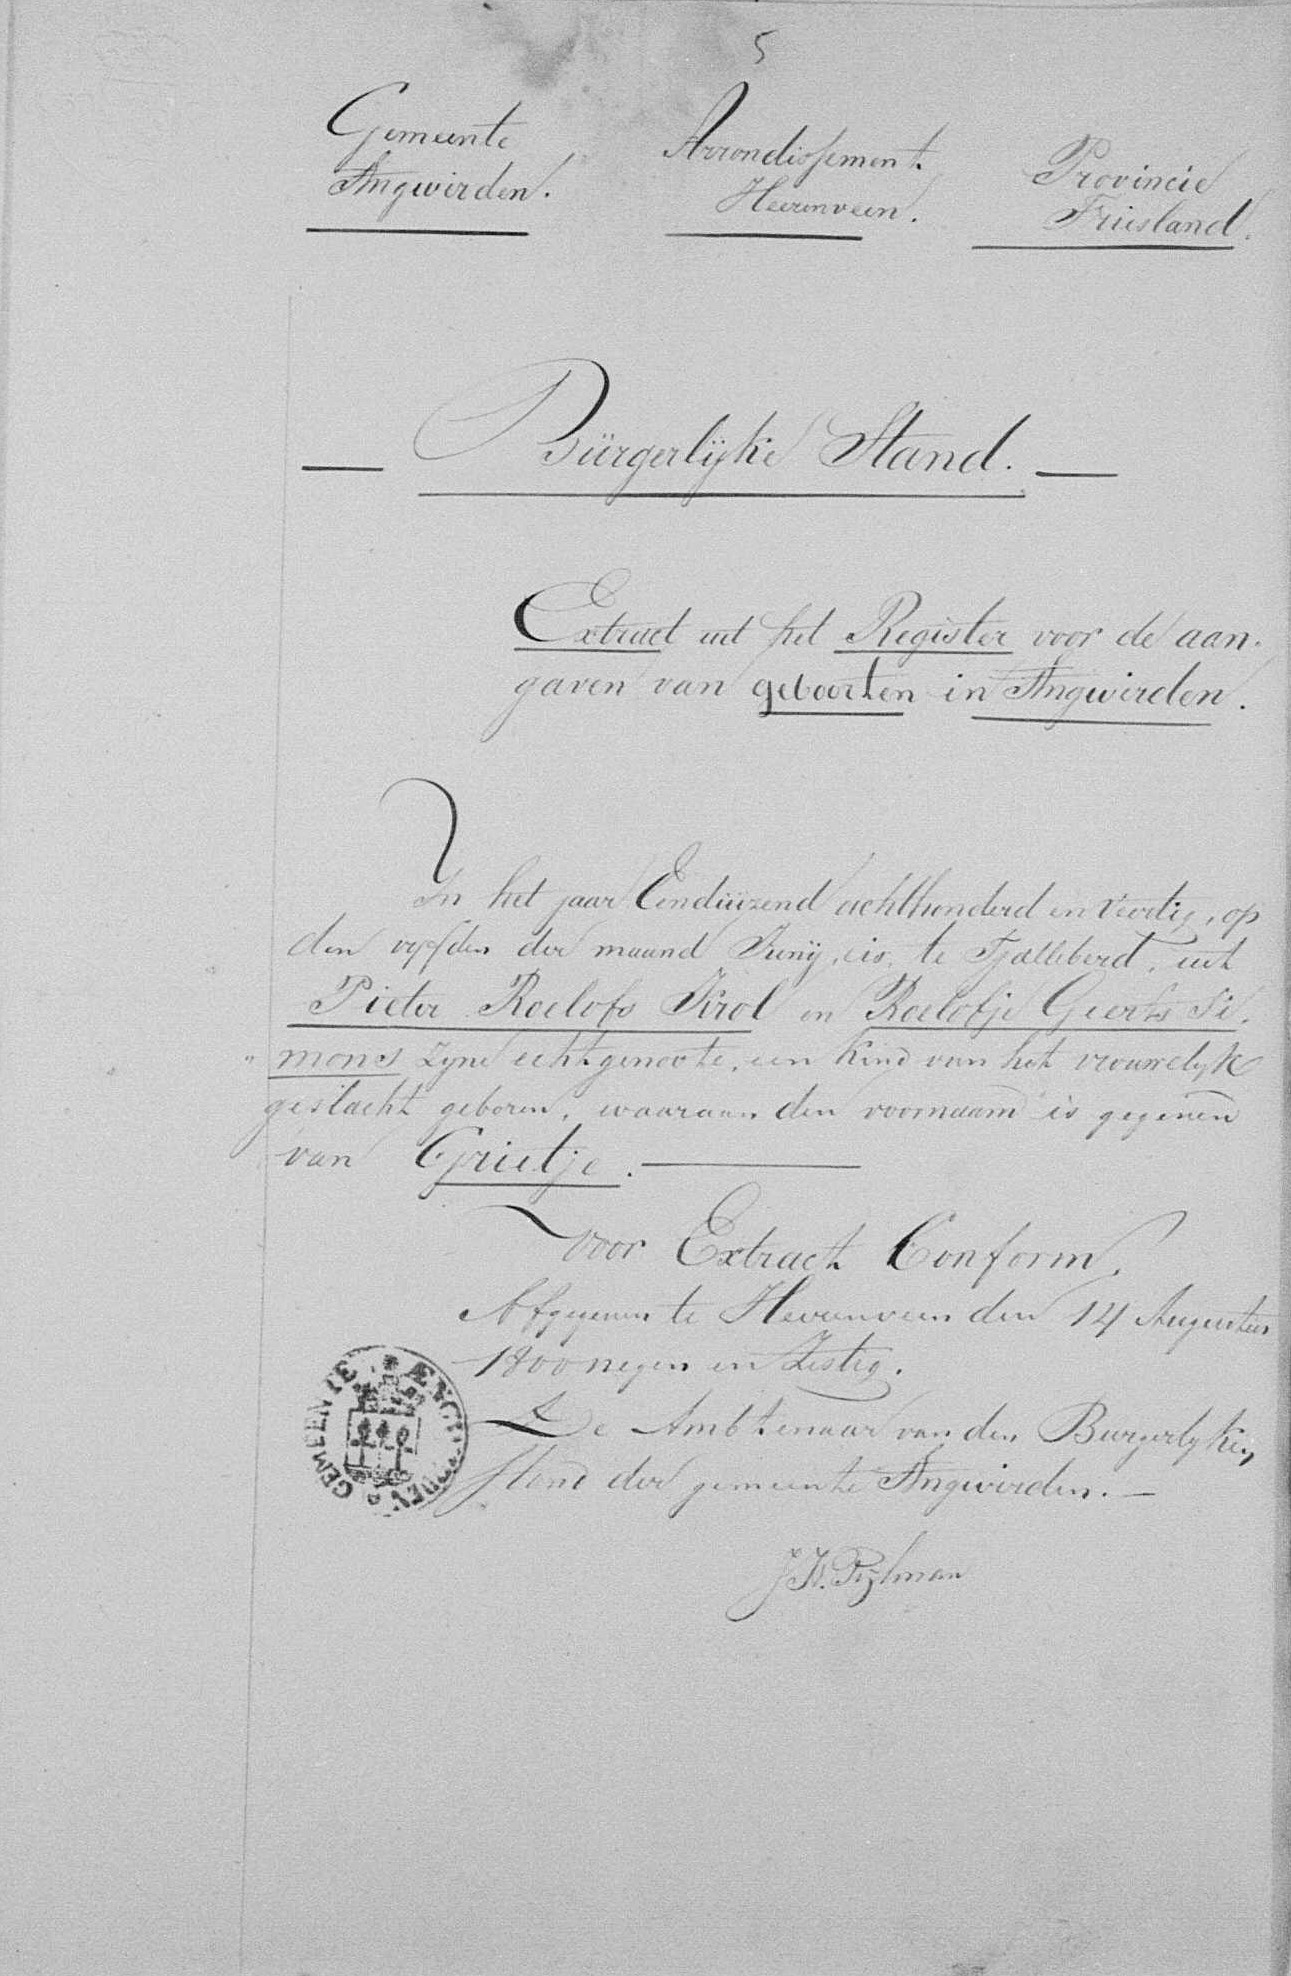 5
Gemeente Arrondissement. Provincie
Ængwirden. Heerenveen. Friesland.
Bürgerlijke Stand.
Extract uit het Register voor de aan-
gaven van geboorten in Ængwirden.
In het jaar Eenduizend achthonderd en veertig, op
den vyfden der maand Junij, is te Tjalleberd, uit
Pieter Roelofs Krol en Roelofje Geerts Si-
„ mons zyne echtgenoote, een kind van het vrouwelyk
geslacht geboren, waaraan den voornaam is gegeven
van Grietje.
Voor Extract Conform,
Afgegeven te Heerenveen den 14 Augustus
1800 negen en Zestig.
De Ambtenaar van den Burgerlyken
Stand der gemeente Ængwirden.
GEMEENTE ÆNGWIRDEN
Pylman